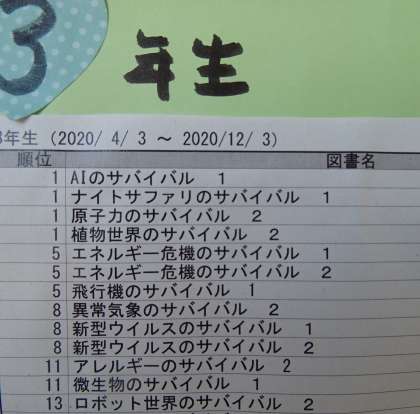 3年生
3年生 (2020/ 4/ 3 ～ 2020/12/ 3)
順位 図書名
1 AIのサバイバル 1
1 ナイトサファリのサバイバル 1
1 原子力のサバイバル 2
1 植物世界のサバイバル 2
5 エネルギー危機のサバイバル 1
5 エネルギー危機のサバイバル 2
5 飛行機のサバイバル 1
8 異常気象のサバイバル 2
8 新型ウイルスのサバイバル 1
8 新型ウイルスのサバイバル 2
11 アレルギーのサバイバル 2
11 微生物のサバイバル 1
13 ロボット世界のサバイバル 2